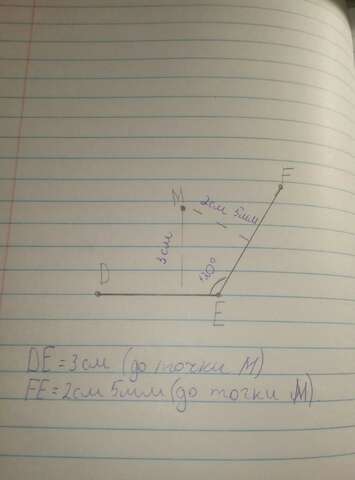 F
M
2см 5мм
3см
130°
D
E
DE = 3см (до точки M)
FE = 2см 5мм (до точки M).